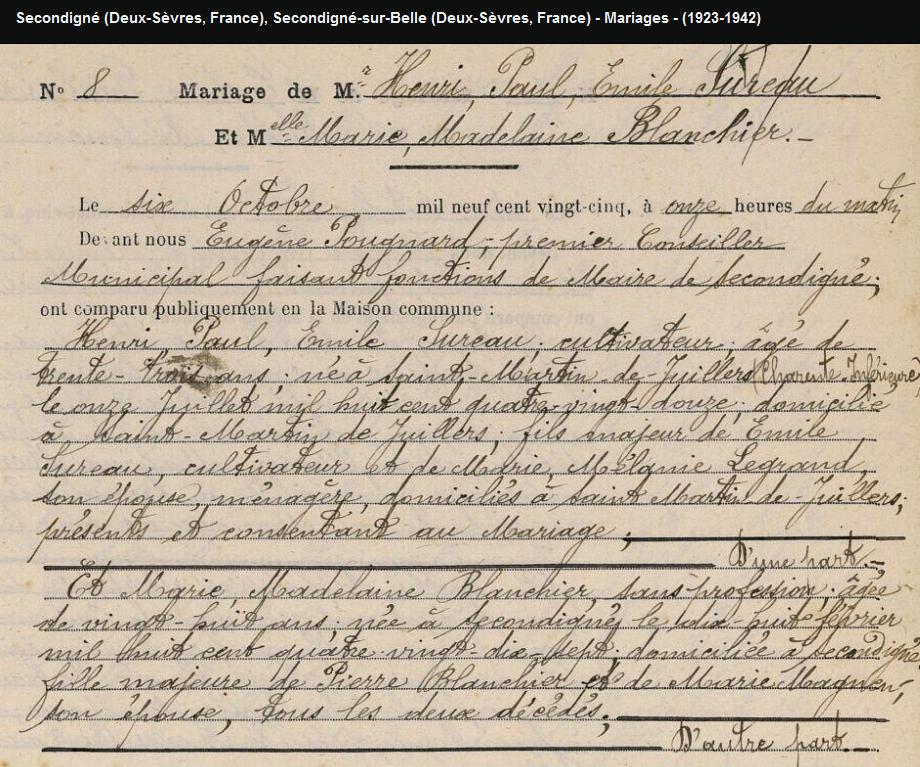 Secondigné (Deux-Sèvres, France), Secondigné-sur-Belle (Deux-Sèvres, France) - Mariages - (1923-1942)
No 8 Mariage de M.r Henri, Paul, Emile Sureau
Et Melle Marie, Madelaine Blanchier.
Le six Octobre mil neuf cent vingt-cinq, à onze heures du matin
Devant nous Eugène Pougnard, premier Conseiller
Municipal faisant fonctions de Maire de Secondigné,
ont comparu publiquement en la Maison commune :
Henri, Paul, Emile Sureau, cultivateur, âgé de
trente-trois ans, né à Saint-Martin-de-Juillers (Charente-Inférieure)
le onze Juillet mil huit cent quatre-vingt-douze, domicilié
à Saint-Martin de Juillers, fils majeur de Emile
Sureau, cultivateur et de Marie, Mélanie Legrand,
son épouse, ménagère, domiciliés à Saint Martin-de-Juillers,
présents et consentant au Mariage ;
D'une part.
Et Marie, Madelaine Blanchier, sans profession, âgée
de vingt-huit ans, née à Secondigné le dix-huit février
mil huit cent quatre-vingt-dix-sept, domiciliée à Secondigné
fille majeure de Pierre Blanchier et de Marie Magnen,
son épouse, tous les deux décédés,
D'autre part.